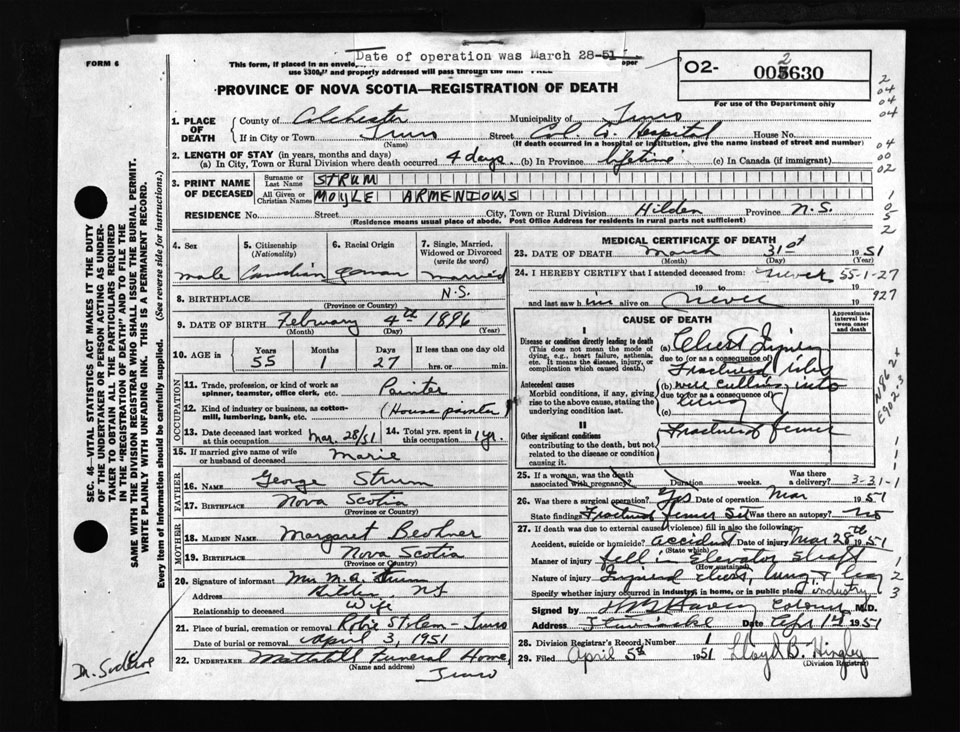 Date of operation was March 28-51
FORM 6
This form, if placed in an envelo
use $300, and properly addressed will pass through the mail FREE
PROVINCE OF NOVA SCOTIA—REGISTRATION OF DEATH
O2- 630
For use of the Department only
1. PLACE OF DEATH
County of Colchester Municipality of Truro
If in City or Town Truro Street Col. Co. Hospital House No.
(Name) (If death occurred in a hospital or institution, give the name instead of street and number)
2. LENGTH OF STAY (in years, months and days)
(a) In City, Town or Rural Division where death occurred 4 days (b) In Province lifetime (c) In Canada (if immigrant)
3. PRINT NAME OF DECEASED
Surname or Last Name STRUM
All Given or Christian Names MOYLE ARMENIOUS
RESIDENCE House No. Street City, Town or Rural Division Hilden Province N.S.
(Residence means usual place of abode. Post Office Address for residents in rural parts not sufficient)
SEC. 46—VITAL STATISTICS ACT MAKES IT THE DUTY OF THE UNDERTAKER OR PERSON ACTING AS UNDERTAKER TO OBTAIN ALL THE PARTICULARS REQUIRED IN THE "REGISTRATION OF DEATH" AND TO FILE THE SAME WITH THE DIVISION REGISTRAR WHO SHALL ISSUE THE BURIAL PERMIT.
WRITE PLAINLY WITH UNFADING INK. THIS IS A PERMANENT RECORD.
Every item of information should be carefully supplied. (See reverse side for instructions.)
4. Sex male
5. Citizenship (Nationality) Canadian
6. Racial Origin German
7. Single, Married, Widowed or Divorced (write the word) married
8. BIRTHPLACE N.S.
(Province or Country)
9. DATE OF BIRTH February 4th 1896
(Month) (Day) (Year)
10. AGE in Years 55 Months 1 Days 27 If less than one day old hrs. or min.
OCCUPATION
11. Trade, profession, or kind of work as spinner, teamster, office clerk, etc. Painter
12. Kind of industry or business, as cotton-mill, lumbering, bank, etc. (House painter)
13. Date deceased last worked at this occupation Mar. 28/51 14. Total yrs. spent in this occupation 1 yr.
15. If married give name of wife or husband of deceased Marie
FATHER
16. NAME George Strum
17. BIRTHPLACE Nova Scotia
(Province or Country)
MOTHER
18. MAIDEN NAME Margaret
19. BIRTHPLACE Nova Scotia
(Province or Country)
20. Signature of informant Mrs M. A. Strum
Address Hilden, NS
Relationship to deceased Wife
21. Place of burial, cremation or removal Robie St. - Truro
Date of burial or removal April 3, 1951
22. UNDERTAKER Mattatall Funeral Home,
Truro
MEDICAL CERTIFICATE OF DEATH
23. DATE OF DEATH March 31st 1951
(Month) (Day)
24. I HEREBY CERTIFY that I attended deceased from never 55-1-27
19 to 19
and last saw him alive on never 19 927
CAUSE OF DEATH
Approximate interval between onset and death
I
Disease or condition directly leading to death
(This does not mean the mode of dying, e.g., heart failure, asthenia, etc. It means the disease, injury, or complication which caused death.)
(a) Chest Injury
due to (or as a consequence of)
Fractured ribs
Antecedent causes
Morbid conditions, if any, giving rise to the above cause, stating the underlying condition last.
(b) were cutting into
due to (or as a consequence of)
lung
(c)
II
Other significant conditions
contributing to the death, but not related to the disease or condition causing it.
Fractured femur
N86 2+
E902.3
25. If a woman, was the death associated with pregnancy? Duration weeks. Was there a delivery? 3-31-1
26. Was there a surgical operation? Yes Date of operation Mar 1951
State findings Fractured femur Set Was there an autopsy? No
27. If death was due to external causes (violence) fill in also the following:
Accident, suicide or homicide? accident Date of injury Mar 28th 1951
(State which)
Manner of injury fell in Elevator shaft
(How sustained)
Nature of injury Injured chest, lung & leg
Specify whether injury occurred in industry, in home, or in public place industry
Signed by M.D.
Address Date Apr 14 1951
28. Division Registrar's Record Number 1
29. Filed April 5th 1951 Lloyd B. Hingley
(Division Registrar)